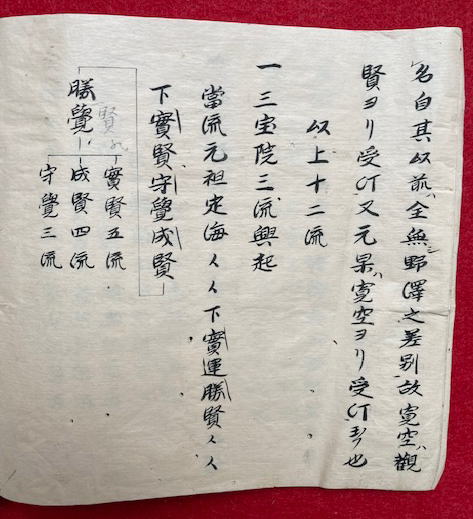 名自其以前ハ全無シ野澤之差別故寛空ハ觀
賢ヨリ受灯又元杲ハ寛空ヨリ受灯也
以上十二流
一三宝院三流興起
當流元祖定海人人下實運勝賢人人
下實賢守覺成賢
勝覺
實賢五流
成賢四流
守覺三流